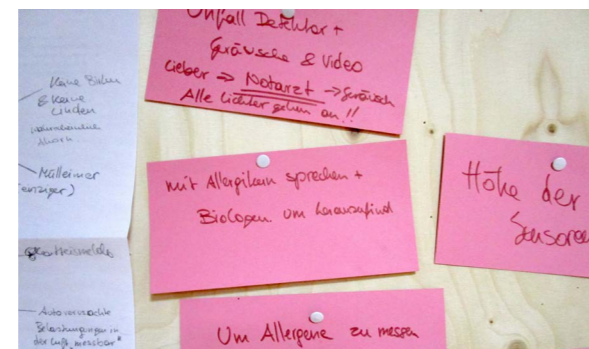 Keine Birken
& Keine
Linden
Mülleimer
Autoverursachte
Belastungen in
der Luft messbar
Unfall Detektor +
Geräusche & Video
lieber → Notarzt → Geräusch
Alle Lichter gehen an!!
mit Allergikern sprechen +
Biologen um herauszufind
Höhe der
Sensoren
Um Allergene zu messen